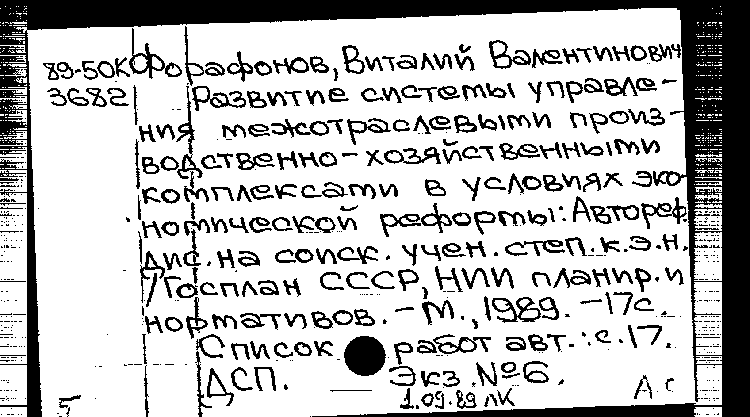 89-50К Форафонов, Виталий Валентинович
3682 Развитие системы управле-
ния межотраслевыми произ-
водственно-хозяйственными
комплексами в условиях эко-
номической реформы: Автореф.
дис. на соиск. учен. степ. к.э.н.
/Госплан СССР, НИИ планир. и
нормативов. - М., 1989. - 17с.
Список работ авт.: с.17.
ДСП. — Экз. №6.
1.09.89 ЛК
5 А с